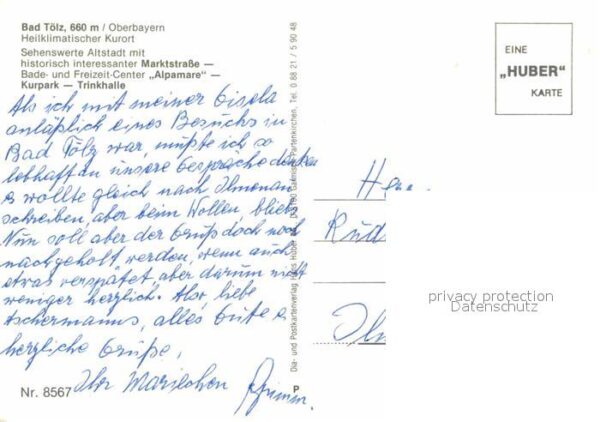 Bad Tölz, 660 m / Oberbayern
Heilklimatischer Kurort
Sehenswerte Altstadt mit
historisch interessanter Marktstraße —
Bade- und Freizeit-Center „Alpamare" —
Kurpark — Trinkhalle
Als ich mit meiner Gisela
anläßlich eines Besuchs in
Bad Tölz war, mußte ich so
lebhaft an unsere Gespräche denken
wollte gleich nach Ilmenau
schreiben, aber beim Wollen blieb's
Nun soll aber der Gruß doch noch
nachgeholt werden, wenn auch
etwas verspätet, aber darum nicht
weniger herzlich. Also, liebe
alles Gute
herzliche Grüße,
Ihr Mariechen Grimm.
Nr. 8567
Dia- und Postkartenverlag Huber Garmisch-Partenkirchen, Tel. 0 88 21 / 5 90 48
P
EINE
„HUBER"
KARTE
Herr
Rud
Ilm
privacy protection
Datenschutz